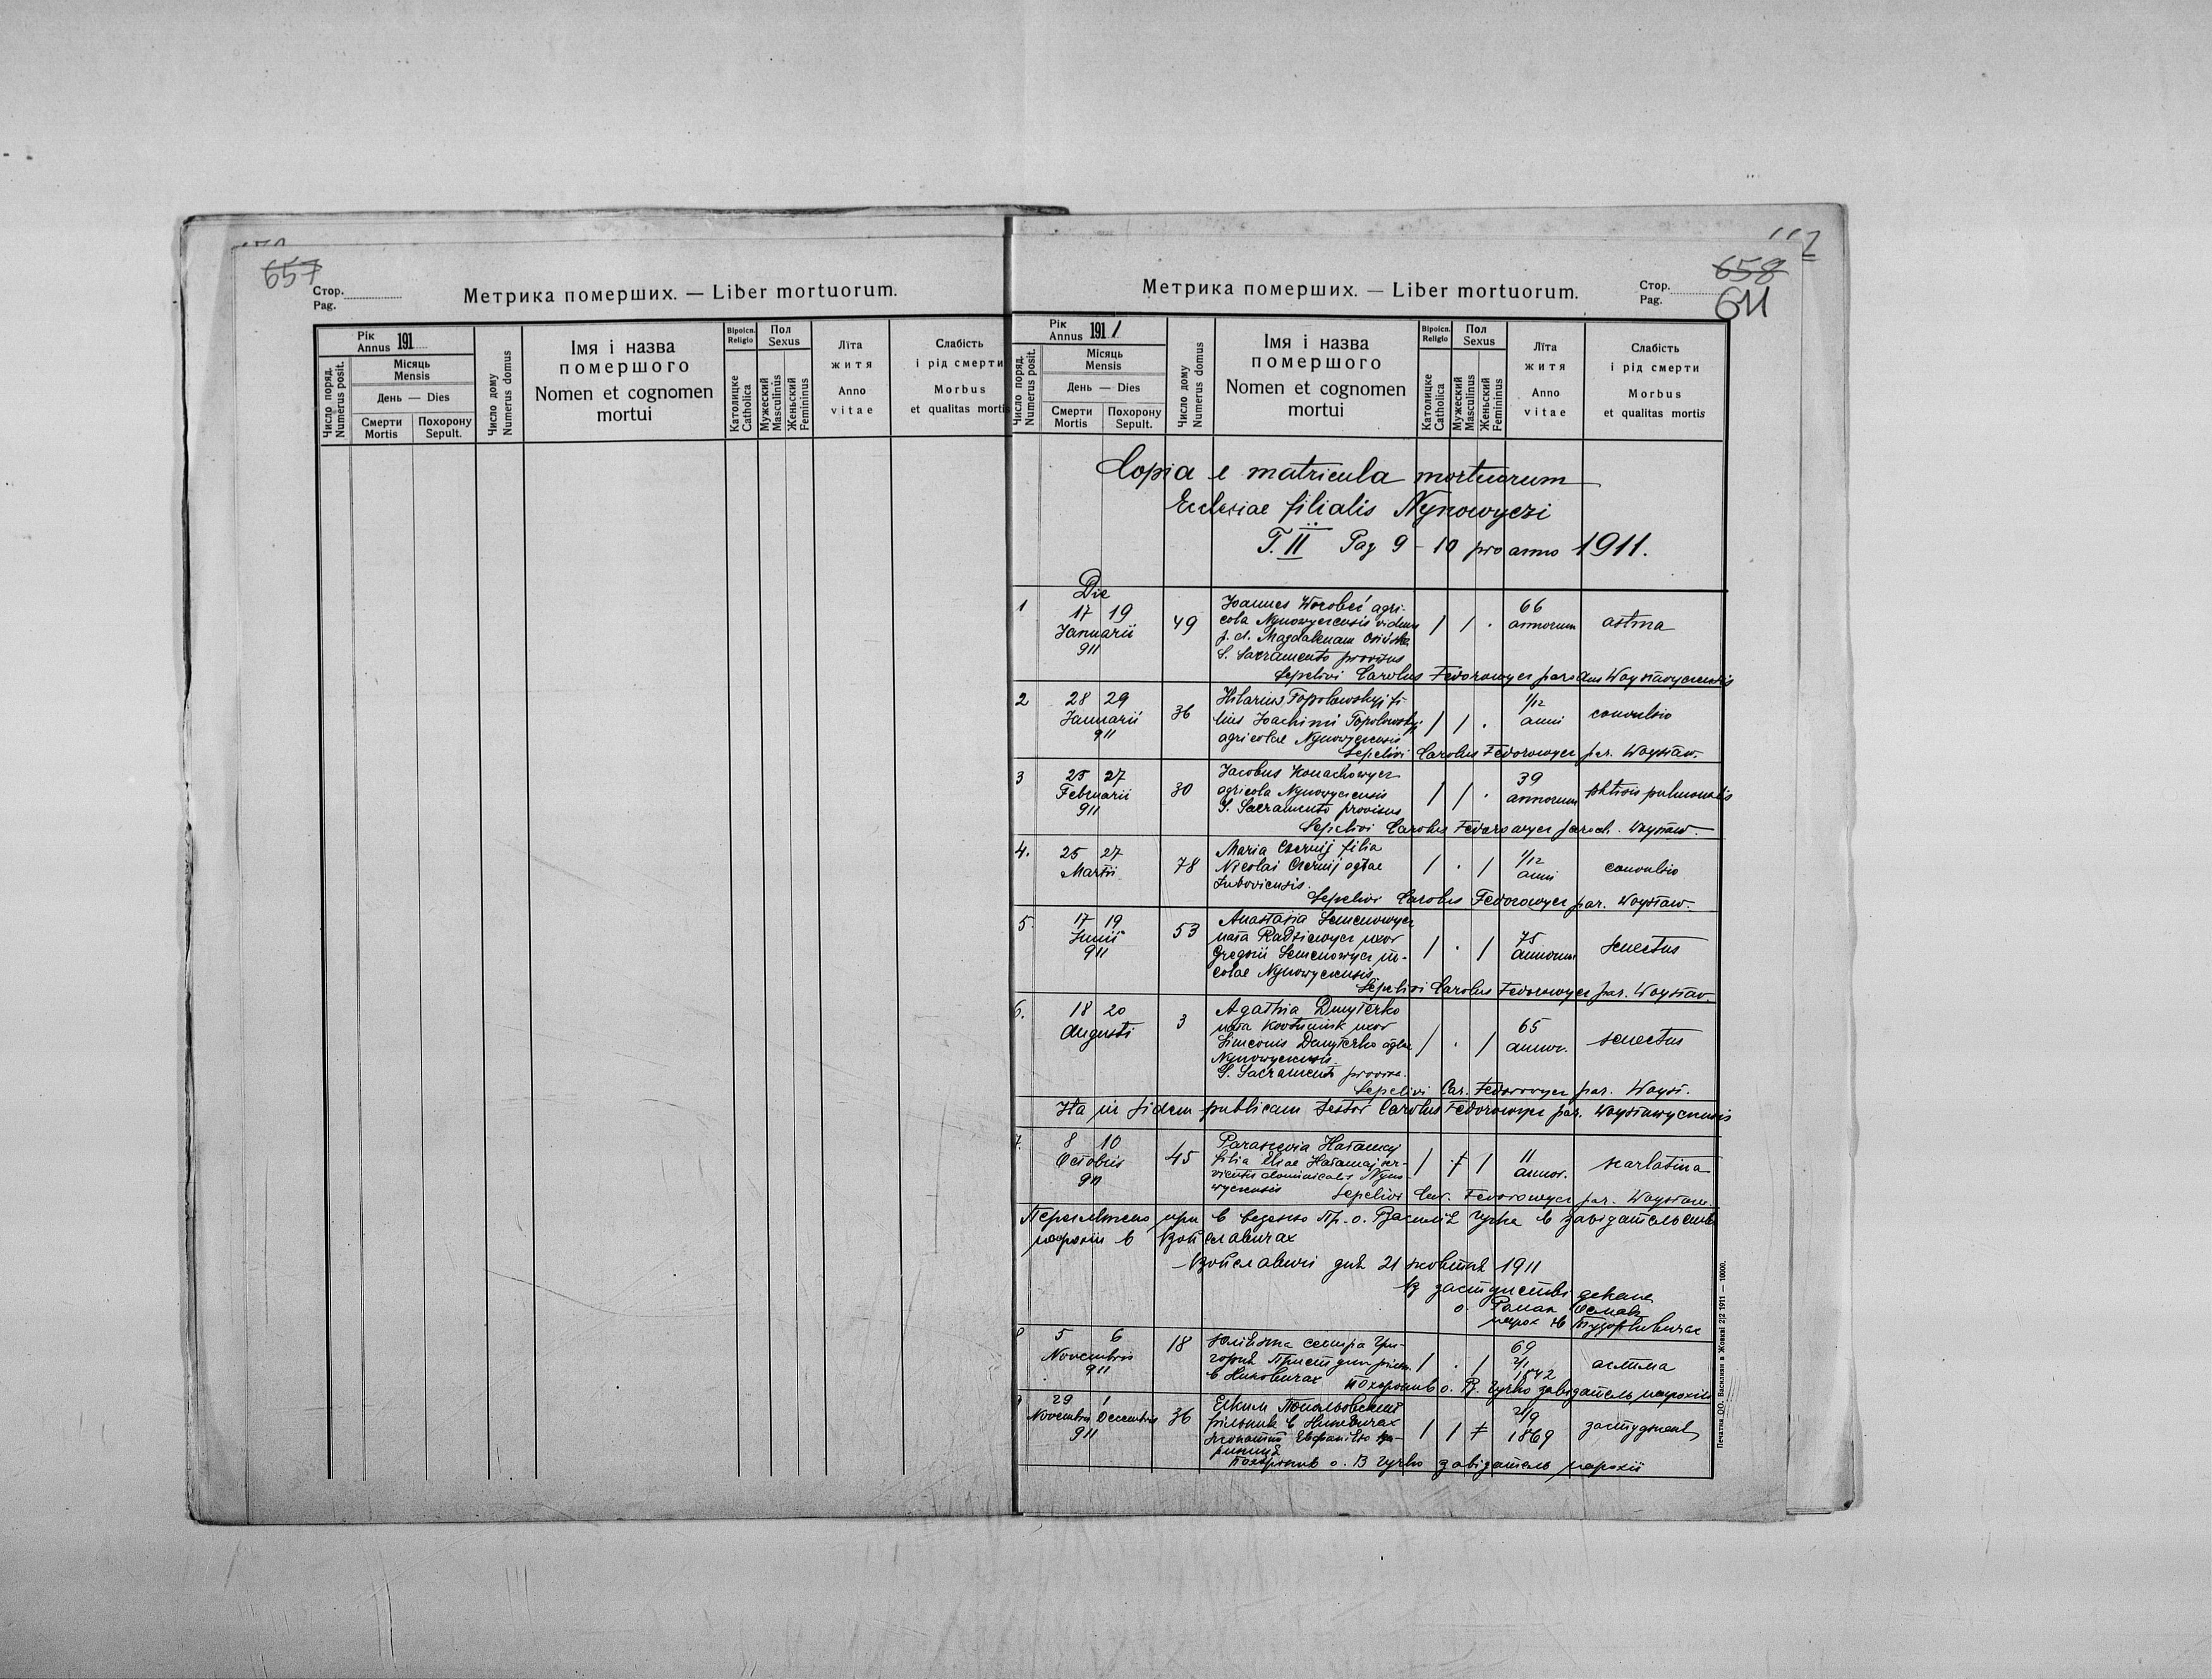 657
Стор.
Pag.
Метрика померших. — Liber mortuorum.
Рік
Annus 191
Число поряд.
Numerus posit.
Місяць
Mensis
День — Dies
Смерти
Mortis
Похорону
Sepult.
Число дому
Numerus domus
Імя і назва
помершого
Nomen et cognomen
mortui
Віроісп.
Religio
Католицке
Catholica
Пол
Sexus
Мужеский
Masculinus
Женьский
Femininus
Літа
житя
Anno
vitae
Слабість
і рід смерти
Morbus
et qualitas mortis
658
611
Стор.
Pag.
Метрика померших. — Liber mortuorum.
Рік
Annus 1911
Число поряд.
Numerus posit.
Місяць
Mensis
День — Dies
Смерти
Mortis
Похорону
Sepult.
Число дому
Numerus domus
Імя і назва
помершого
Nomen et cognomen
mortui
Віроісп.
Religio
Католицке
Catholica
Пол
Sexus
Мужеский
Masculinus
Женьский
Femininus
Літа
житя
Anno
vitae
Слабість
і рід смерти
Morbus
et qualitas mortis
Copia e matricula mortuorum
Ecclesiae filialis Nynowyczi
T. II Pag 9 - 10 pro anno 1911.
Die
1 17 19 Januarii 911 49
Joannes Worobeć agri-
cola Nynowycensis viduus
p. d. Magdalenam
S. Sacramento provisus
66 annorum astma
Sepelivi Carolus Fedorowycz parochus Woysławycensis
2 28 29 Januarii 911 36
Hilarius Topolowskyj fi-
lius Joachimi Topolowskyj
agricolae Nynowycensis
1/12 anni convulsio
Sepelivi Carolus Fedorowycz par. Woysław.
3 25 27 Februarii 911 30
Jacobus Konachowycz
agricola Nynowycensis
S. Sacramento provisus
39 annorum phtisis pulmonalis
Sepelivi Carolus Fedorowycz paroch. Woysław.
4. 25 27 Martii 78
Maria Czernij filia
Nicolai Czernij agłae
1/12 anni convulsio
Sepelivi Carolus Fedorowycz par. Woysław.
5 17 19 Junii 911 53
Anastasia Semenowycz
nata Radziewycz uxor
Gregorii Semenowycz in-
colae Nynowycensis
75 annorum senectus
Sepelivi Carolus Fedorowycz par. Woysław.
6. 18 20 Augusti 3
Agathia Dmyterko
nata uxor
Simeonis Dmyterko aglae
Nynowycensis
S. Sacramento provisa.
65 annor. senectus
Sepelivi Car. Fedorowycz par. Woysł.
Ita in fidem publicam testor Carolus Fedorowycz par. Woysławycensis
7. 8 10 Octobris 911 45
Parascevia Hatamaj
filia Eliae Hatamaj ser-
vientis dominicalis Nyno-
wycensis
11 annor. scarlatina
Sepelivi Car. Fedorowycz par. Woysław.
при в веденю Пр. о. Василія Чурка в завідательство
парохіи в Войславичах
Войславичі дня 21 жовтня 1911
В заступстві декана
о. Роман
парох в
8 5 6 Novembris 911 18
сестра Гри-
горія
в Ниновичах
69 2/1 1842 астма
похоронив о. В. Чурко завідатель парохіи
9 29 1 Novembris Decembris 911 36
Еким Топольовский
рільник в Ниновичах
21/9 1869
похоронив о. В Чурко завідатель парохіи
Печатня ОО. Василиян в Жовкві 2|2 1911 — 10000.